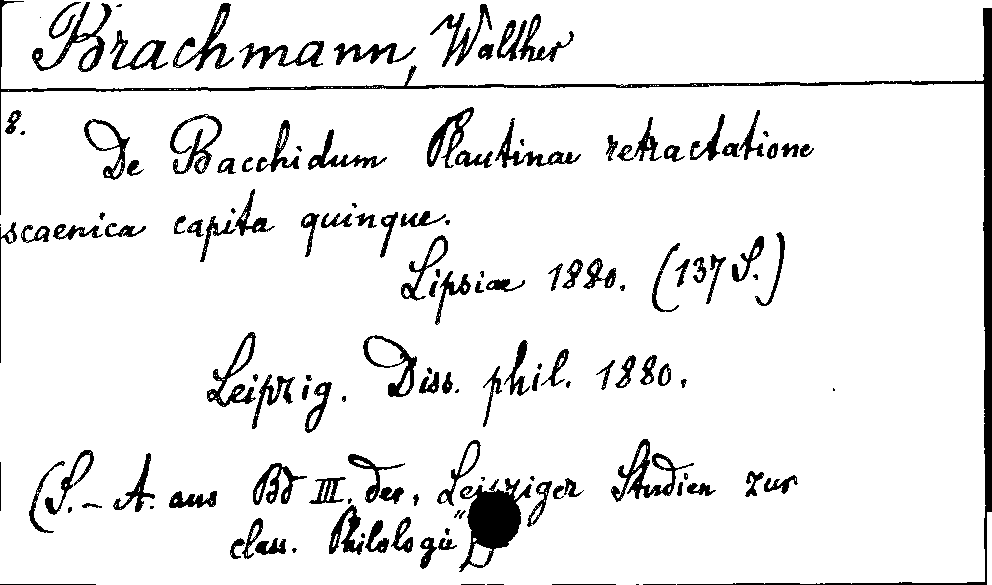 Brachmann, Walther
8.
De Bacchidum Plautinae retractatione
scaenica capita quinque.
Lipsiae 1880. (137 S.)
Leipzig. Diss. phil. 1880.
(S.-A. aus Bd III. der „Leipziger Studien zur
class. Philologie")